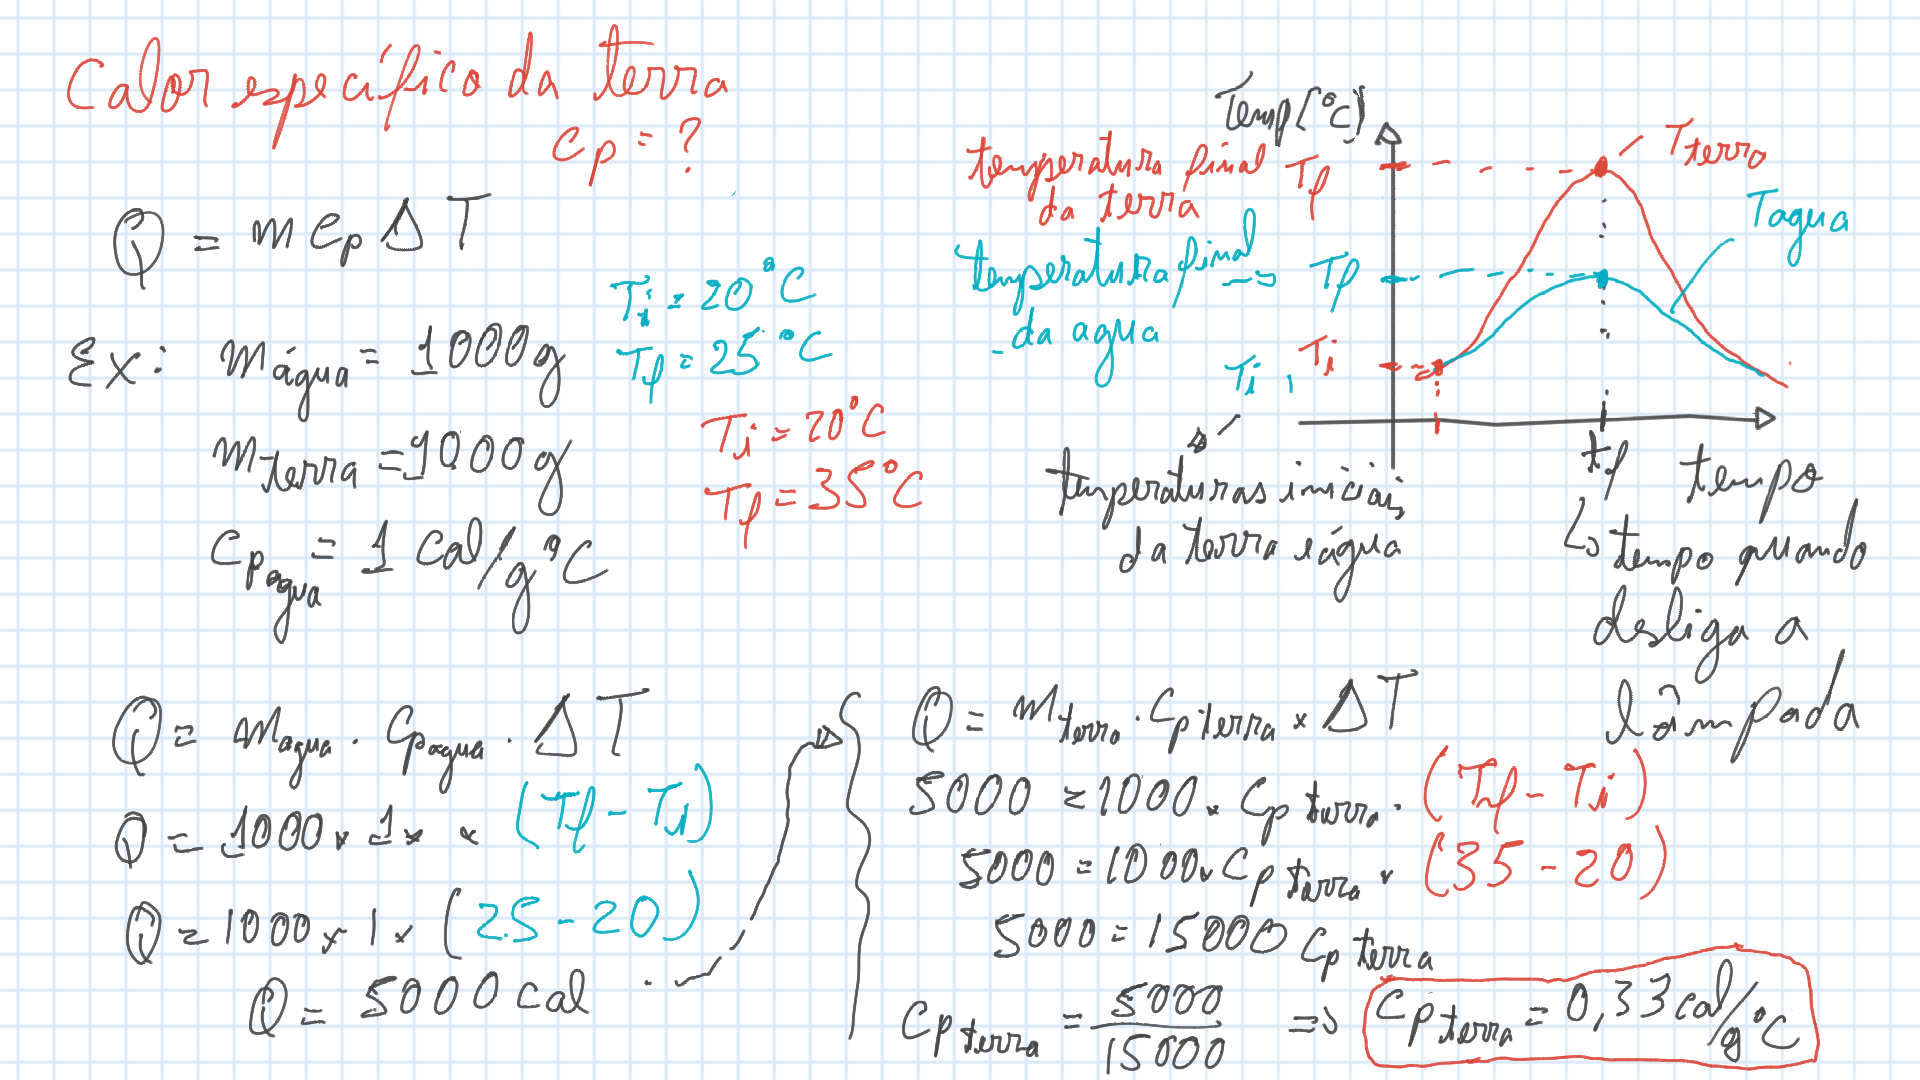 Calor específico da terra
cp = ?
Q = m cp Δ T
Ex: mágua = 1000g
mterra = 1000g
cpagua = 1 cal/g°C
Ti = 20°C
Tf = 25°C
Ti = 20°C
Tf = 35°C
Temp[°C)
temperatura final Tf
da terra
temperatura final => Tf
da agua
Ti , Ti
temperaturas iniciais
da terra e água
Tterra
Tagua
tf
tempo
↳ tempo quando
desliga a
lâmpada
Q = magua . Cpagua . Δ T
Q = 1000 x 1 x x (Tf - Ti)
Q = 1000 x 1 x (25 - 20)
Q = 5000 cal
Q = mterra . Cpterra x Δ T
5000 = 1000 x Cp terra . (Tf - Ti)
5000 = 1000 x Cp terra x (35 - 20)
5000 = 15000 Cp terra
Cp terra = 5000/15000 => Cp terra = 0,33 cal/g°C